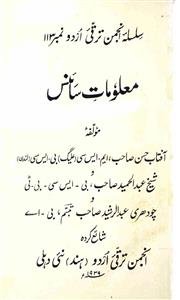 سلسلہ انجمن ترقی اردو نمبر ۱۱۳
معلومات سائنس
مؤلفہ
آفتاب حسن صاحب، ایم ۔ ایس سی (علیگ) بی ۔ ایس سی (لندن)
و
شیخ عبدالحمید صاحب، بی ۔ ایس سی ۔ بی ۔ ٹی
و
چودھری عبدالرشید صاحب تبسم، بی ۔ اے
شائع کردہ
انجمن ترقی اردو (ہند) نئی دہلی
۱۹۳۹ء